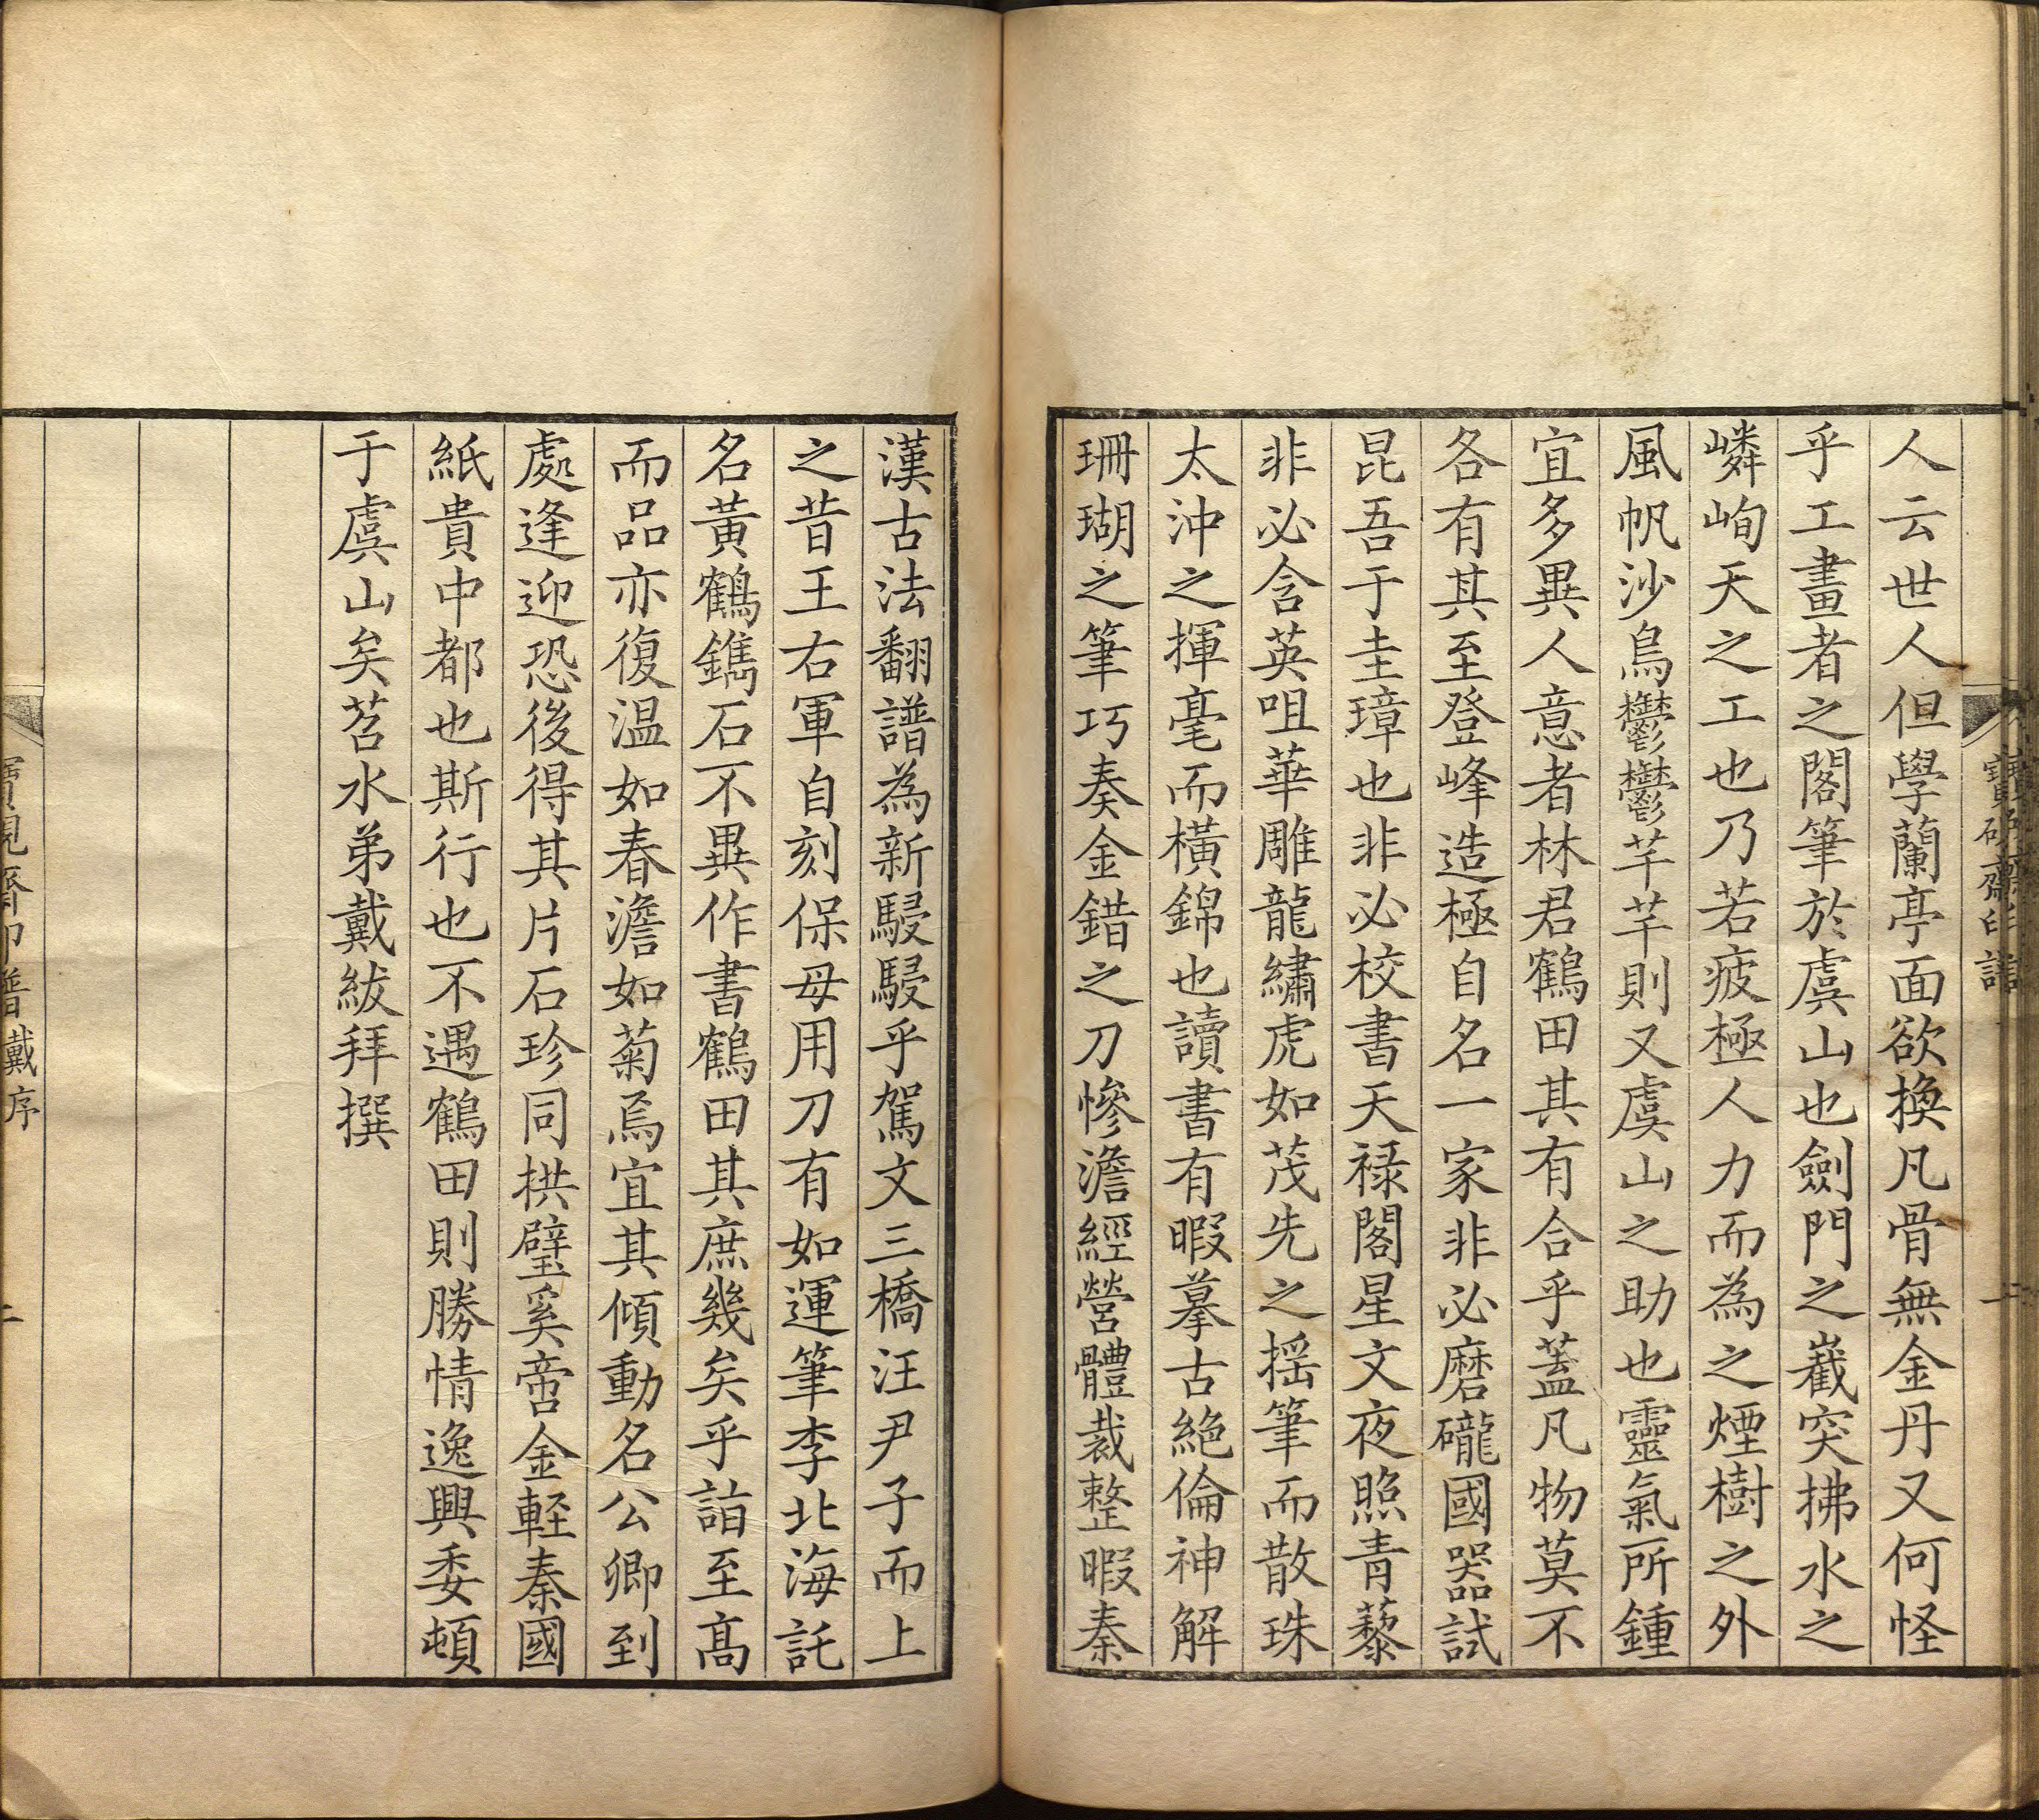 人云世人但學蘭亭面欲換凡骨無金丹又何怪
乎工畫者之閣筆於虞山也劍門之巀突拂水之
嶙峋天之工也乃若疲極人力而為之煙樹之外
風帆沙鳥鬱鬱芊芊則又虞山之助也靈氣所鍾
宜多異人意者林君鶴田其有合乎蓋凡物莫不
各有其至登峰造極自名一家非必磨礲國器試
昆吾于圭璋也非必校書天禄閣星文夜照青藜
非必含英咀華雕龍繡虎如茂先之揺筆而散珠
太沖之揮毫而橫錦也讀書有暇摹古絶倫神解
珊瑚之筆巧奏金錯之刀慘澹經營體裁整暇秦
漢古法翻譜為新駸駸乎駕文三橋汪尹子而上
之昔王右軍自刻保母用刀有如運筆李北海託
名黃鶴鐫石不異作書鶴田其庶幾矣乎詣至高
而品亦復温如春澹如菊焉宜其傾動名公卿到
處逢迎恐後得其片石珍同拱璧奚啻金軽秦國
紙貴中都也斯行也不遇鶴田則勝情逸興委頓
于虞山矣苕水弟戴紱拜撰
寶硯齋印譜
戴序
二